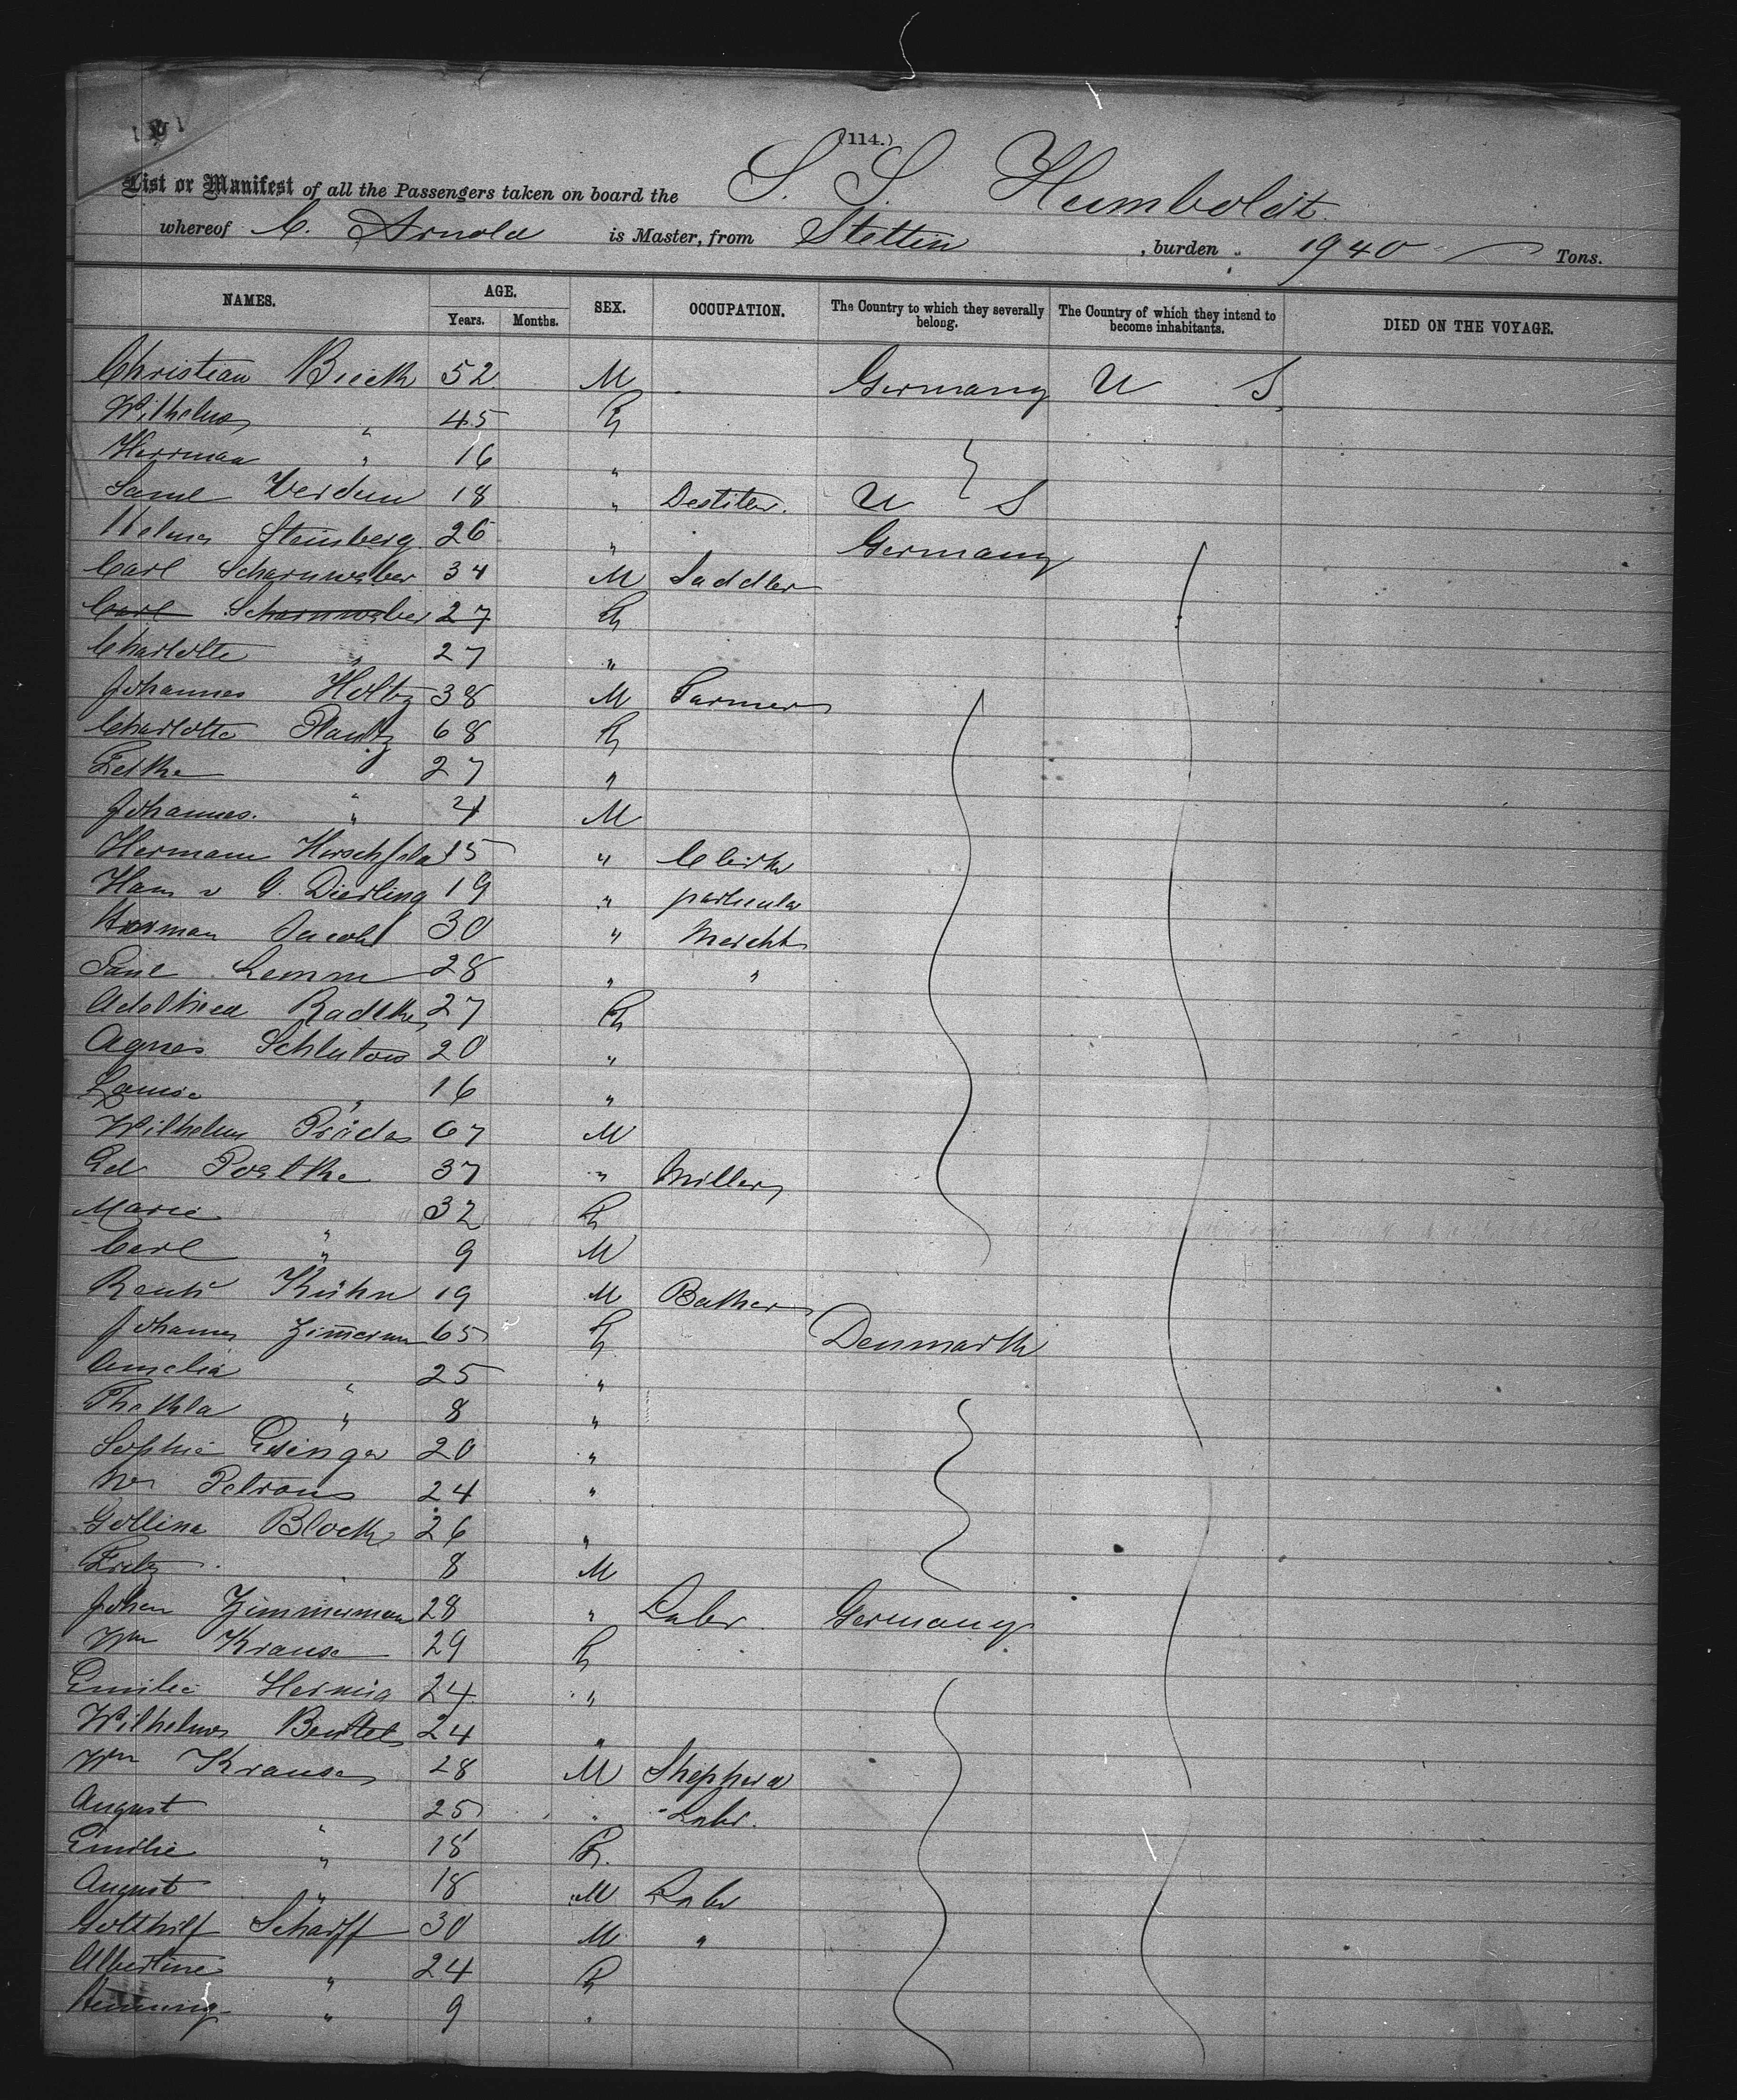 (114.)
List or Manifest of all the Passengers taken on board the S. S. Humboldt
whereof C. Arnold is Master, from Stettin , burden 1940 Tons.
NAMES. AGE. SEX. OCCUPATION. The Country to which they severally belong. The Country of which they intend to become inhabitants. DIED ON THE VOYAGE.
Years. Months.
Christian 52 M Germany U S
Wilhelm " 45
Herrman " 16 "
Saml Verdun 18 " U S
Steinberg 26 " Germany
Carl Scharnweber 34 M Saddler
Carl Scharnweber 27
Charlotte " 27 "
Johannes Holtz 38 M Farmer
Charlotte Plantz 68
27 "
Johannes. " 4 M
Hermann Hirschfeld 15 " Clerk
Hans v G. Dierling 19 " particular
Herman Jacobi 30 " Mercht
Paul Lemm 28 " "
Adelheid Radtke 27
Agnes Schlutow 20 "
Louise " 16 "
Wilhelm 67 M
Ed 37 " Miller
Marie " 32
Carl " 9 M
Kühn 19 M Baker
Zimmerman 65 Denmark
Amelia " 25 "
Thekla " 8 "
Sophie 20 "
24 "
Block 26 "
Fritz 8 M
Johan Zimmerman 28 " Labr Germany
Wm Krause 29
Emilie 24 "
Wilhelm 24 "
Wm Krause 28 M Shepherd
August " 25 " Labr.
Emilie " 18
August " 18 M Labr
Gotthilf Scharff 30 M "
Albertine " 24
Henning " 9 "